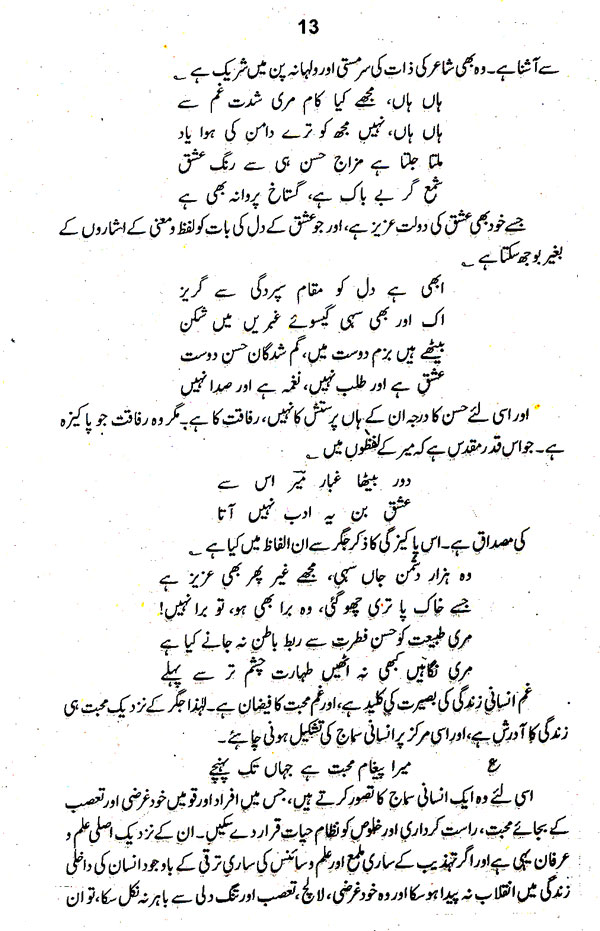 13
سے آشنا ہے۔ وہ بھی شاعر کی ذات کی سرمستی اور ولہانہ پن میں شریک ہے ؎
ہاں ہاں، مجھے کیا کام مری شدت غم سے
ہاں ہاں، نہیں مجھ کو ترے دامن کی ہوا یاد
ملتا جلتا ہے مزاج حسن ہی سے رنگ عشق
شمع گر بے باک ہے، گستاخ پروانہ بھی ہے
جسے خود بھی عشق کی دولت عزیز ہے، اور جو عشق کے دل کی بات کو لفظ و معنی کے اشاروں کے
بغیر بوجھ سکتا ہے ؎
ابھی ہے دل کو مقام سپردگی سے گریز
اک اور بھی سہی گیسوئے عنبریں میں شکن
بیٹھے ہیں بزم دوست میں، گم شدگان حسن دوست
عشق ہے اور طلب نہیں، نغمہ ہے اور صدا نہیں
اور اسی لئے حسن کا درجہ ان کے ہاں پرستش کا نہیں، رفاقت کا ہے۔ مگر وہ رفاقت جو پاکیزہ
ہے۔ جو اس قدر مقدس ہے کہ میر کے لفظوں میں ؎
دور بیٹھا غبار میرؔ اس سے
عشق بن یہ ادب نہیں آتا
کی مصداق ہے۔ اس پاکیزگی کا ذکر جگر سے ان الفاظ میں کیا ہے ؎
وہ ہزار دشمن جاں سہی، مجھے غیر پھر بھی عزیز ہے
جسے خاک پا تری چھو گئی، وہ برا بھی ہو، تو برا نہیں!
مری طبیعت کو حسن فطرت سے ربط باطن نہ جانے کیا ہے
مری نگاہیں کبھی نہ اٹھیں طہارت چشم تر سے پہلے
غم انسانی زندگی کی بصیرت کی کلید ہے، اور غم محبت کا فیضان ہے۔ لہٰذا جگر کے نزدیک محبت ہی
زندگی کا آدرش ہے، اور اسی مرکز پر انسانی سماج کی تشکیل ہونی چاہئے۔
ع میرا پیغام محبت ہے جہاں تک پہنچے
اسی لئے وہ ایک انسانی سماج کا تصور کرتے ہیں، جس میں افراد اور قومیں خود غرضی اور تعصب
کے بجائے محبت، راست کرداری اور خلوص کو نظام حیات قرار دے سکیں۔ ان کے نزدیک اصلی علم و
عرفان یہی ہے اور اگر تہذیب کے ساری ملمع اور علم و سائنس کی ساری ترقی کے باوجود انسان کی داخلی
زندگی میں انقلاب نہ پیدا ہو سکا اور وہ خود غرضی، لالچ، تعصب اور تنگ دلی سے باہر نہ نکل سکا، تو ان